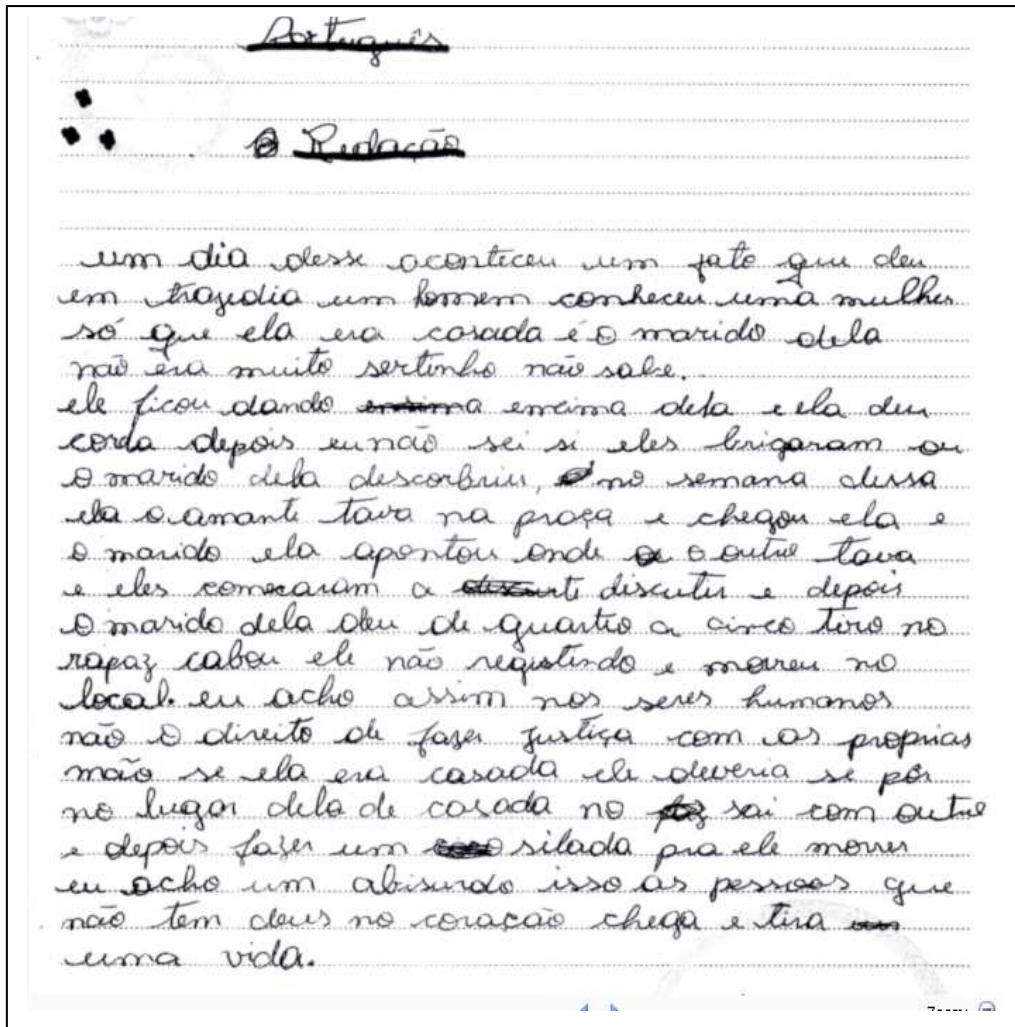 Português
Redação
um dia desse aconteceu um fato que deu
em tragedia um homem conheceu uma mulher
só que ela era casada é o marido dela
não era muito sertinho não sabe.
ele ficou dando ensima emcima dela e ela deu
corda depois eu não sei si eles brigaram ou
o marido dela descorbriu, no semana dessa
ela o amante tava na praça e chegou ela e
o marido ela apontou onde o outro tava
e eles começaram a discutir e depois
o marido dela deu de quartro a cinco tiro no
rapaz cabou ele não registindo e morreu no
local. eu acho assim nos seres humanos
não o direito de fazer justiça com as proprias
mão se ela era casada ele deveria se pôr
no lugar dela de casada no sai com outro
e depois fazer um silada pra ele morrer
eu acho um abisurdo isso as pessoas que
não tem deus no coração chega e tira
uma vida.